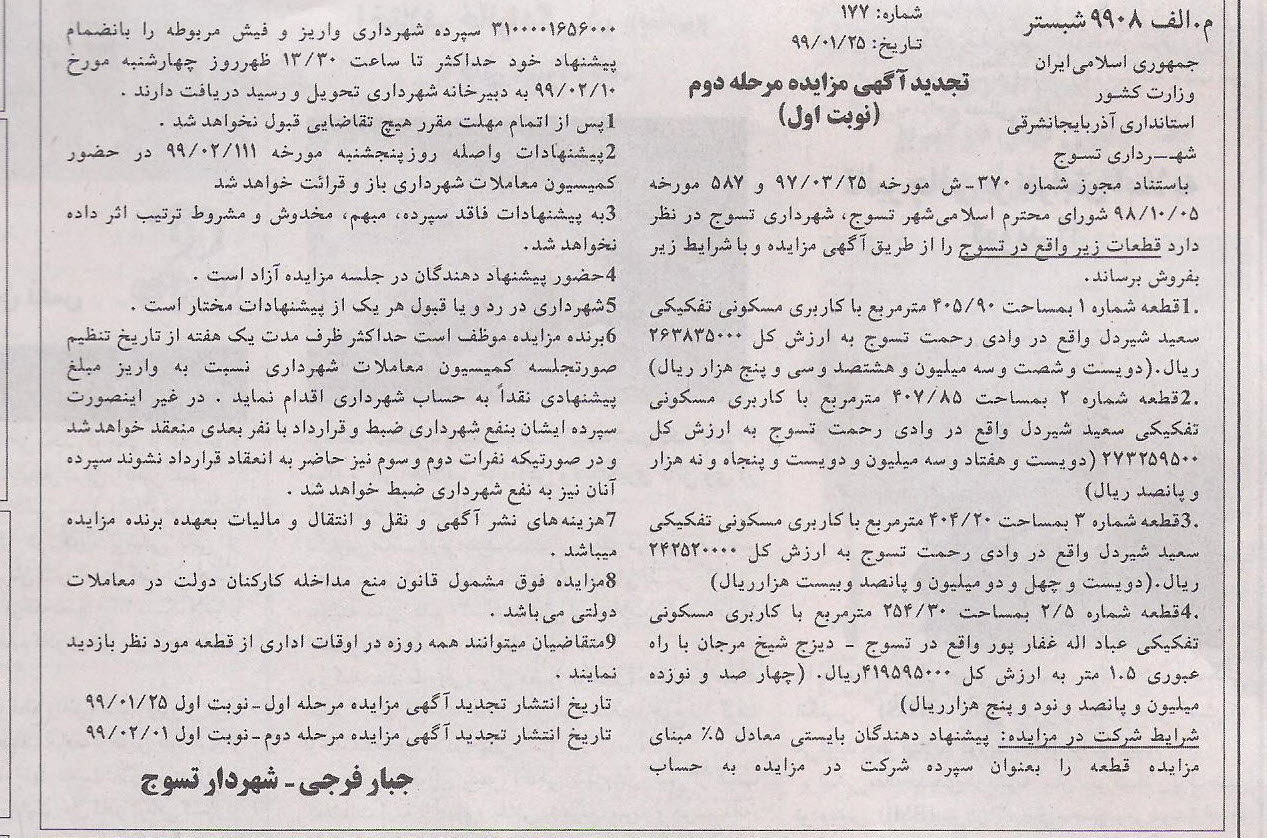 م.الف ۹۹۰۸ شبستر
جمهوری اسلامی ایران
وزارت کشور
استانداری آذربایجانشرقی
شهـــرداری تسوج
شماره: ۱۷۷
تاریخ: ۹۹/۰۱/۲۵
تجدید آگهی مزایده مرحله دوم
(نوبت اول)
باستناد مجوز شماره ۳۷۰-ش مورخه ۹۷/۰۳/۲۵ و ۵۸۷ مورخه
۹۸/۱۰/۰۵ شورای محترم اسلامی شهر تسوج، شهرداری تسوج در نظر
دارد قطعات زیر واقع در تسوج را از طریق آگهی مزایده و با شرایط زیر
بفروش برساند.
.1قطعه شماره ۱ بمساحت ۴۰۵/۹۰ مترمربع با کاربری مسکونی تفکیکی
سعید شیردل واقع در وادی رحمت تسوج به ارزش کل ۲۶۳۸۳۵۰۰۰
ریال.(دویست و شصت و سه میلیون و هشتصد و سی و پنج هزار ریال)
.2قطعه شماره ۲ بمساحت ۴۰۷/۸۵ مترمربع با کاربری مسکونی
تفکیکی سعید شیردل واقع در وادی رحمت تسوج به ارزش کل
۲۷۳۲۵۹۵۰۰ (دویست و هفتاد و سه میلیون و دویست و پنجاه و نه هزار
و پانصد ریال)
.3قطعه شماره ۳ بمساحت ۴۰۴/۲۰ مترمربع با کاربری مسکونی تفکیکی
سعید شیردل واقع در وادی رحمت تسوج به ارزش کل ۲۴۲۵۲۰۰۰۰
ریال.(دویست و چهل و دو میلیون و پانصد وبیست هزارریال)
.4قطعه شماره ۲/۵ بمساحت ۲۵۴/۳۰ مترمربع با کاربری مسکونی
تفکیکی عباد اله غفار پور واقع در تسوج - دیزج شیخ مرجان با راه
عبوری ۱.۵ متر به ارزش کل ۴۱۹۵۹۵۰۰۰ریال. (چهار صد و نوزده
میلیون و پانصد و نود و پنج هزارریال)
شرایط شرکت در مزایده: پیشنهاد دهندگان بایستی معادل ۵٪ مبنای
مزایده قطعه را بعنوان سپرده شرکت در مزایده به حساب
۳۱۰۰۰۰۱۶۵۶۰۰۰ سپرده شهرداری واریز و فیش مربوطه را بانضمام
پیشنهاد خود حداکثر تا ساعت ۱۳/۳۰ ظهرروز چهارشنبه مورخ
۹۹/۰۲/۱۰ به دبیرخانه شهرداری تحویل و رسید دریافت دارند .
1پس از اتمام مهلت مقرر هیچ تقاضایی قبول نخواهد شد .
2پیشنهادات واصله روزپنجشنبه مورخه ۹۹/۰۲/۱۱۱ در حضور
کمیسیون معاملات شهرداری باز و قرائت خواهد شد
3به پیشنهادات فاقد سپرده، مبهم، مخدوش و مشروط ترتیب اثر داده
نخواهد شد.
4حضور پیشنهاد دهندگان در جلسه مزایده آزاد است .
5شهرداری در رد و یا قبول هر یک از پیشنهادات مختار است .
6برنده مزایده موظف است حداکثر ظرف مدت یک هفته از تاریخ تنظیم
صورتجلسه کمیسیون معاملات شهرداری نسبت به واریز مبلغ
پیشنهادی نقداً به حساب شهرداری اقدام نماید . در غیر اینصورت
سپرده ایشان بنفع شهرداری ضبط و قرارداد با نفر بعدی منعقد خواهد شد
و در صورتیکه نفرات دوم و سوم نیز حاضر به انعقاد قرارداد نشوند سپرده
آنان نیز به نفع شهرداری ضبط خواهد شد .
7هزینه‌های نشر آگهی و نقل و انتقال و مالیات بعهده برنده مزایده
میباشد .
8مزایده فوق مشمول قانون منع مداخله کارکنان دولت در معاملات
دولتی می‌باشد .
9متقاضیان میتوانند همه روزه در اوقات اداری از قطعه مورد نظر بازدید
نمایند .
تاریخ انتشار تجدید آگهی مزایده مرحله اول-نوبت اول ۹۹/۰۱/۲۵
تاریخ انتشار تجدید آگهی مزایده مرحله دوم-نوبت اول ۹۹/۰۲/۰۱
جبار فرجی - شهردار تسوج